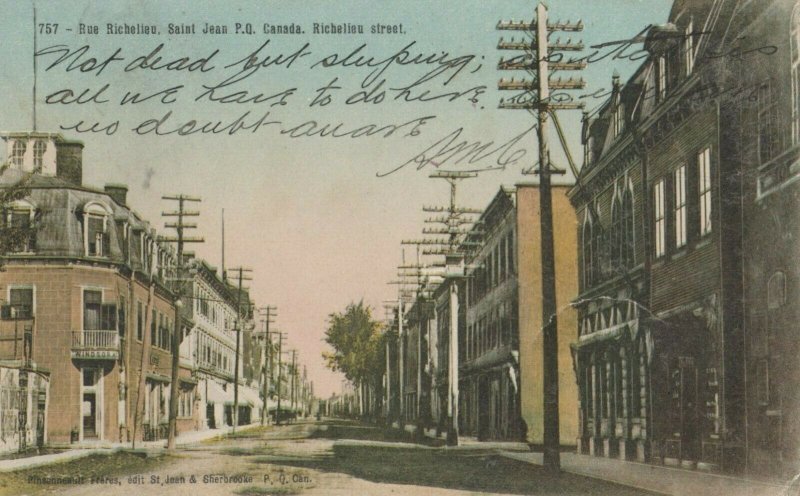 757 - Rue Richelieu, Saint Jean P.Q. Canada. Richelieu street.
Not dead but sleeping; about is
all we have to do here. as you
no doubt aware
AMC
WINDSOR
Pinsonneault Frères, édit St Jean & Sherbrooke P. Q. Can.